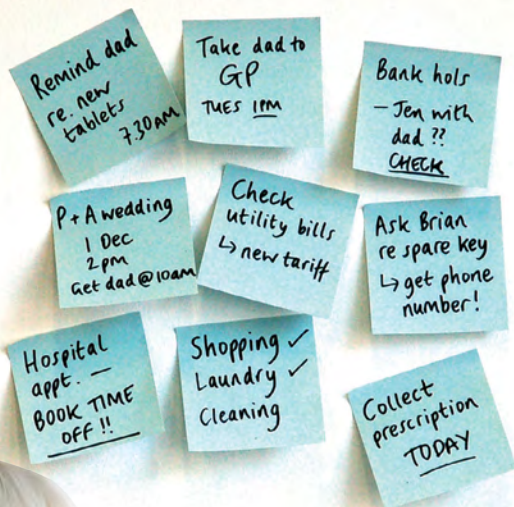 Remind dad
re. new
tablets
7.30AM
Take dad to
GP
TUES 1PM
Bank hols
– Jen with
dad ??
CHECK
P + A wedding
1 Dec
2pm
Get dad@10am
Check
utility bills
↳ new tariff
Ask Brian
re spare key
↳ get phone
number!
Hospital
appt. —
BOOK TIME
OFF !!
Shopping ✓
Laundry ✓
Cleaning
Collect
prescription
TODAY